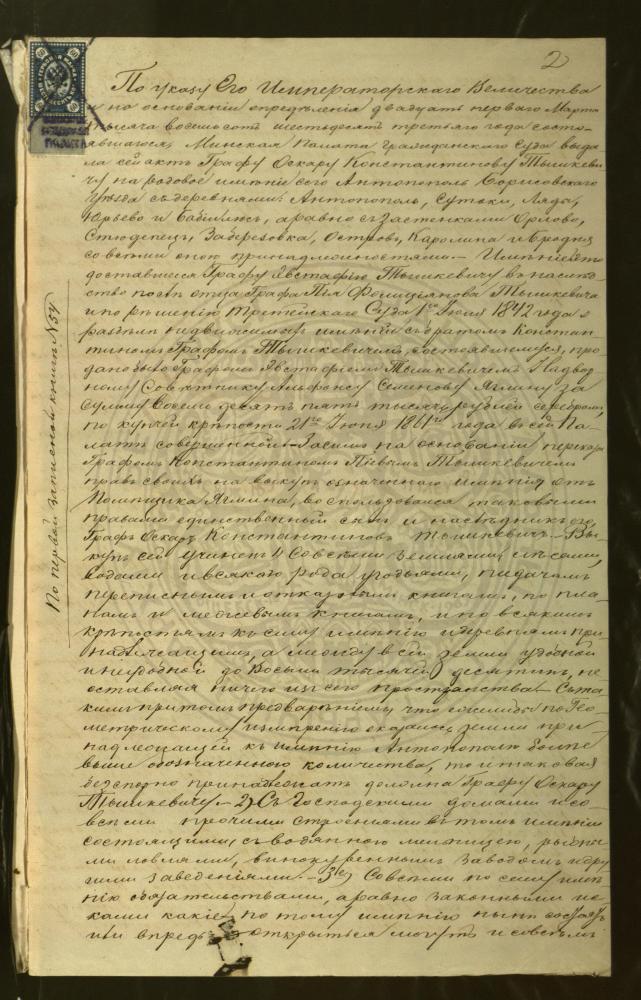 2
По указу Его Императорскаго Величества
и на основаніи опредѣленія двадцать перваго Марта
тысяча восемьсотъ шестьдесятъ третьяго года состо-
явшагося, Минская Палата Гражданскаго Суда выда
ла сей актъ Графу Оскару Константинову Тышкеви
чу на родовое имѣніе его Антополь Борисовскаго
Уѣзда съ деревнями: Антополь, Сутоки, Ляда,
Юрьево и, а равно съ застенками Орлово,
Студенецъ, Заберезовка, Островъ, Каролина и Бродня
со всѣми оною принадлежностями. – Имѣніе это
доставшееся Графу Евстафію Тышкевичу въ наслѣд-
ство послѣ отца Графа Пія Фелиціянова Тышкевича
и по рѣшенію Третейскаго Суда 1го Іюля 1842 года о
раздѣлѣ недвижимыхъ имѣній съ братомъ Констан-
тиномъ Графомъ Тышкевичемъ, состоявшемуся, про
дано было Графомъ Евстафіемъ Тышкевичемъ Надвор
ному Совѣтнику Альфонсу Семенову за
сумму восемьдесятъ пять тысячъ рублей серебромъ,
по купчей крѣпости 21го Іюня 1861го года въ сей Па-
латѣ совершенной. – Засимъ на основаніи
Графомъ Константиномъ Піевымъ Тышкевичемъ
правъ своихъ на выкупъ означеннаго имѣнія отъ
Помѣщика, воспользовался таковыми
правами единственный сынъ и наслѣдникъ его
Графъ Оскаръ Константиновъ Тышкевичъ. – Вы-
купъ сей учиненъ Совсѣми землями, лѣсами,
водами и всякого рода угодьями,
переписнымъ и отказнымъ книгамъ, по пла-
намъ и межевымъ книгамъ, и по всякимъ
крѣпостямъ къ сему имѣнію и деревнямъ при
надлежащимъ, а между всей земли удобной
и неудобной до восьми тысячей десятинъ, не
оставляя ничего изъ сего пространства Съ та
кимъ притомъ предвареніемъ что если бы по Гео
метрическому измѣренію оказалось земли при-
надлежащей къ имѣнію Антополю болѣе
выше обозначеннаго количества, то и таковая
безспорно принадлежать должна Графу Оскару
Тышкевичу. – 2) Съ Господскими домами и со
всѣми прочими строеніями въ томъ имѣніи
состоящими, съ водяною мельницею, рыбны
ми ловлями, винокуреннымъ заводомъ и дру
гими заведеніями. – 3е) Совсѣми по сему имѣ-
нію обязательствами, а равно законными ис
ками какіе по тому имѣнію нынѣ состоятъ
или впредь открыться могутъ и совсѣмъ
По первой записной книгѣ N 54